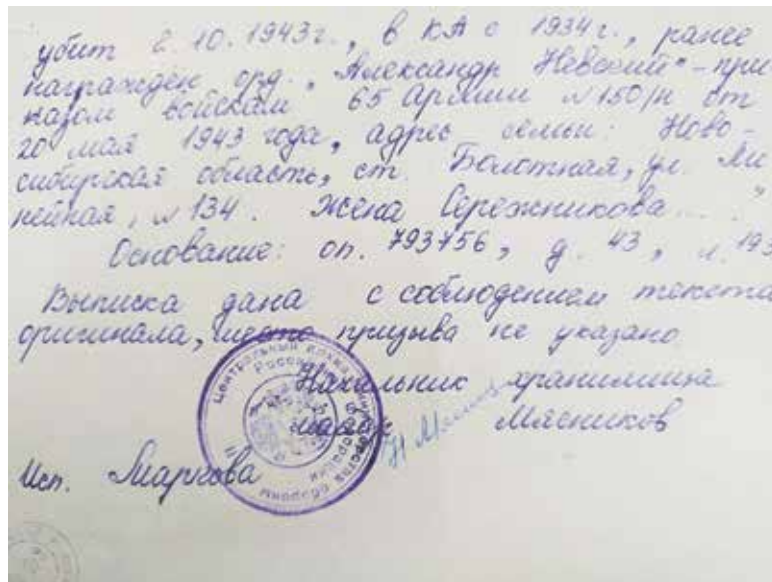 убит 2.10.1943г., в КА с 1934г., ранее
награжден орд. „Александр Невский"-при-
казом войскам 65 Армии №150/н от
20 мая 1943 года, адрес семьи: Ново-
сибирская область, ст. Болотная, ул. Ли
нейная, №134. Жена Сережникова...."
Основание: оп. 793756, д. 43, л. 193
Выписка дана с соблюдением текста
оригинала, место призыва не указано
Начальник хранилища
Мясников
Исп.
Центральный архив Министерства обороны
Российской